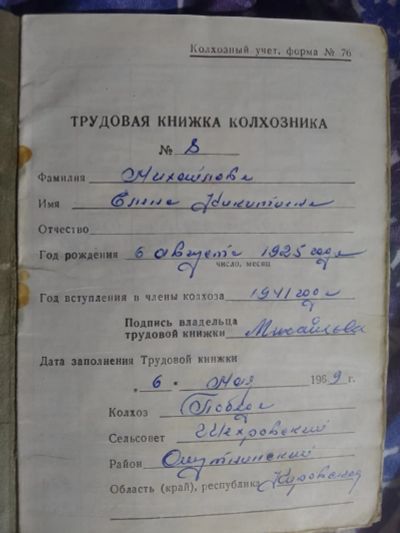 Колхозный учет, форма № 76
ТРУДОВАЯ КНИЖКА КОЛХОЗНИКА
№ 8
Фамилия Михайлова
Имя Елена Никитична
Отчество
Год рождения 6 августа 1925 года
число, месяц
Год вступления в члены колхоза 1941 года
Подпись владельца
трудовой книжки Михайлова
Дата заполнения Трудовой книжки
„ 6 " мая 1969 г.
Колхоз Победа
Сельсовет Шахровский
Район Омутнинский
Область (край), республика Кировская